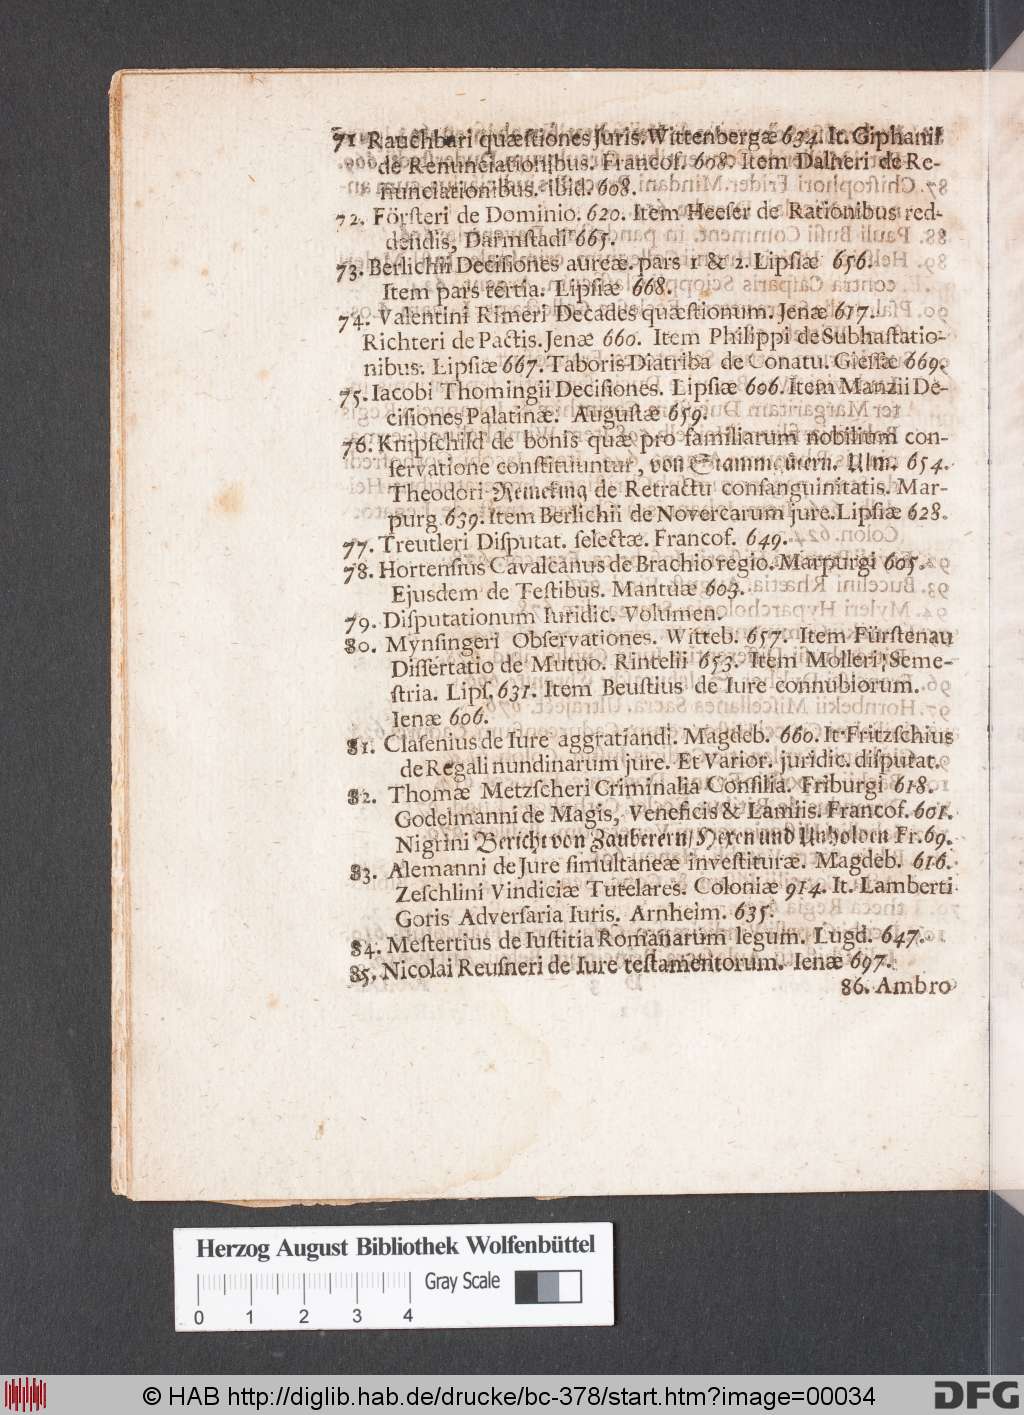 71 Rauchbari quæſtiones Juris. Wittenbergæ 634. It. Giphanii
de Renunciationibus. Francof. 608. Item Dalneri de Re-
nunciationibus. ibid. 608.
72. Förſteri de Dominio. 620. Item Heeſer de Rationibus red-
dendis, Darmſtadi 665.
73. Berlichii Deciſiones aureæ. pars 1 & 2. Lipſiæ 656.
Item pars tertia. Lipſiæ 668.
74. Valentini Rimeri Decades quæſtionum. Jenæ 617.
Richteri de Pactis. Jenæ 660. Item Philippi de Subhaſtatio-
nibus. Lipſiæ 667. Taboris Diatriba de Conatu. Gieſſæ 669.
75. Iacobi Thomingii Deciſiones. Lipſiæ 606. Item Manzii De-
ciſiones Palatinæ. Auguſtæ 659.
76. Knipſchild de bonis quæ pro familiarum nobilium con-
ſervatione conſtituuntur, von Stammgütern. Ulm. 654.
Theodori Reincking de Retractu conſanguinitatis. Mar-
purg 639. Item Berlichii de Novercarum jure. Lipſiæ 628.
77. Treutleri Diſputat. ſelectæ. Francof. 649.
78. Hortenſius Cavalcanus de Brachio regio. Marpurgi 605.
Ejusdem de Teſtibus. Mantuæ 603.
79. Diſputationum Iuridic. Volumen.
80. Mynſingeri Obſervationes. Witteb. 657. Item Fürſtenau
Diſſertatio de Mutuo. Rintelii 653. Item Molleri Seme-
ſtria. Lipſ. 631. Item Beuſtius de Iure connubiorum.
Ienæ 606.
81. Claſenius de Iure aggratiandi. Magdeb. 660. It Fritzſchius
de Regali nundinarum jure. Et Varior. juridic. diſputat.
82. Thomæ Metzſcheri Criminalia Conſilia. Friburgi 618.
Godelmanni de Magis, Veneficis & Lamiis. Francof. 601.
Nigrini Bericht von Zauberern/ Hexen und Unholden Fr. 69.
83. Alemanni de Jure ſimultaneæ inveſtituræ. Magdeb. 616.
Zeſchlini Vindiciæ Tutelares. Coloniæ 914. It. Lamberti
Goris Adverſaria Iuris. Arnheim. 635.
84. Meſtertius de Iuſtitia Romanarum legum. Lugd. 647.
85. Nicolai Reuſneri de Iure teſtamentorum. Ienæ 697.
86. Ambro
Herzog August Bibliothek Wolfenbüttel
Gray Scale
0 1 2 3 4
© HAB http://diglib.hab.de/drucke/bc-378/start.htm?image=00034
DFG